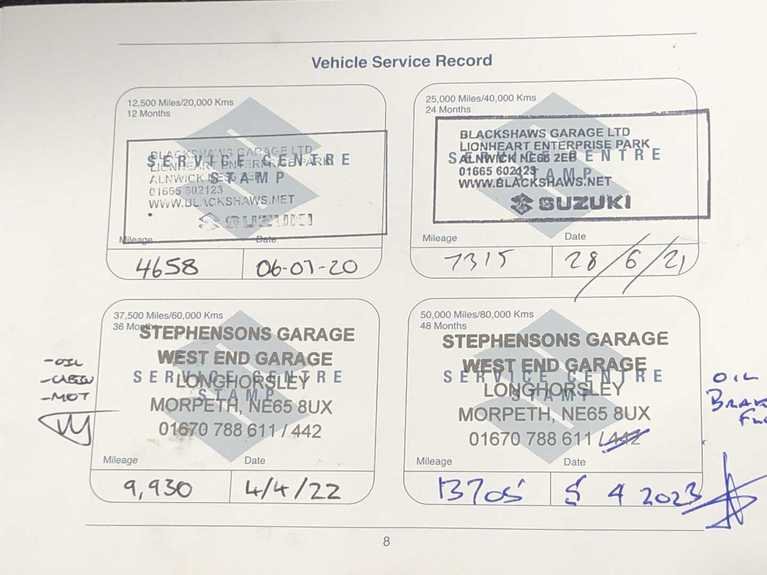 Vehicle Service Record
12,500 Miles/20,000 Kms
12 Months
BLACKSHAWS GARAGE LTD
LIONHEART ENTERPRISE PARK
SERVICE CENTRE
ALNWICK NE66 2EB
STAMP
01665 602123
WWW.BLACKSHAWS.NET
SUZUKI
Mileage
Date
4658
06-07-20
25,000 Miles/40,000 Kms
24 Months
BLACKSHAWS GARAGE LTD
LIONHEART ENTERPRISE PARK
SERVICE CENTRE
ALNWICK NE66 2EB
STAMP
01665 602123
WWW.BLACKSHAWS.NET
SUZUKI
Mileage
Date
7315
28/6/21
37,500 Miles/60,000 Kms
36 Months
STEPHENSONS GARAGE
WEST END GARAGE
SERVICE CENTRE
LONGHORSLEY
STAMP
MORPETH, NE65 8UX
01670 788 611 / 442
-OIL
-CABIN
-MOT
Mileage
Date
9,930
4/4/22
50,000 Miles/80,000 Kms
48 Months
STEPHENSONS GARAGE
WEST END GARAGE
SERVICE CENTRE
LONGHORSLEY
STAMP
MORPETH, NE65 8UX
01670 788 611 / 442
OIL
BRAK
FLU
Mileage
Date
13705
5 4 2023
8